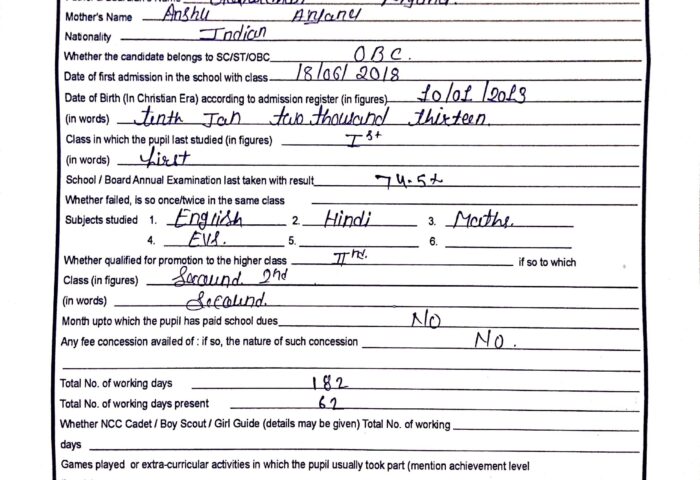 Mother's Name Anshu
Nationality Indian
Whether the candidate belongs to SC/ST/OBC OBC.
Date of first admission in the school with class 18/06/2018
Date of Birth (In Christian Era) according to admission register (in figures) 10/01/2013
(in words) tenth Jan two thousand thirteen.
Class in which the pupil last studied (in figures) Ist
(in words) first
School / Board Annual Examination last taken with result 74.5%
Whether failed, is so once/twice in the same class
Subjects studied 1. English 2. Hindi 3. Maths.
4. EVS. 5. 6.
Whether qualified for promotion to the higher class IInd. if so to which
Class (in figures) Secound 2nd
(in words) Secound.
Month upto which the pupil has paid school dues No
Any fee concession availed of : if so, the nature of such concession No.
Total No. of working days 182
Total No. of working days present 62
Whether NCC Cadet / Boy Scout / Girl Guide (details may be given) Total No. of working
days
Games played or extra-curricular activities in which the pupil usually took part (mention achievement level